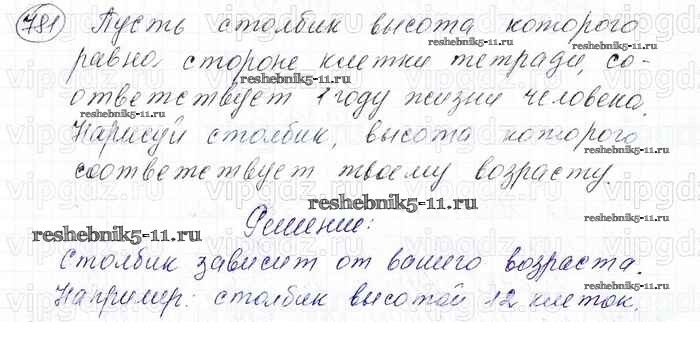 781 Пусть столбик высота которого
равна стороне клетки тетради, со-
ответствует 1 году жизни человека.
Нарисуй столбик, высота которого
соответствует твоему возрасту.
Решение:
Столбик зависит от вашего возраста.
Например: столбик высотой 12 клеток.
reshebnik5-11.ru
reshebnik5-11.ru
reshebnik5-11.ru
reshebnik5-11.ru
reshebnik5-11.ru
reshebnik5-11.ru
reshebnik5-11.ru
reshebnik5-11.ru
reshebnik5-11.ru
reshebnik5-11.ru